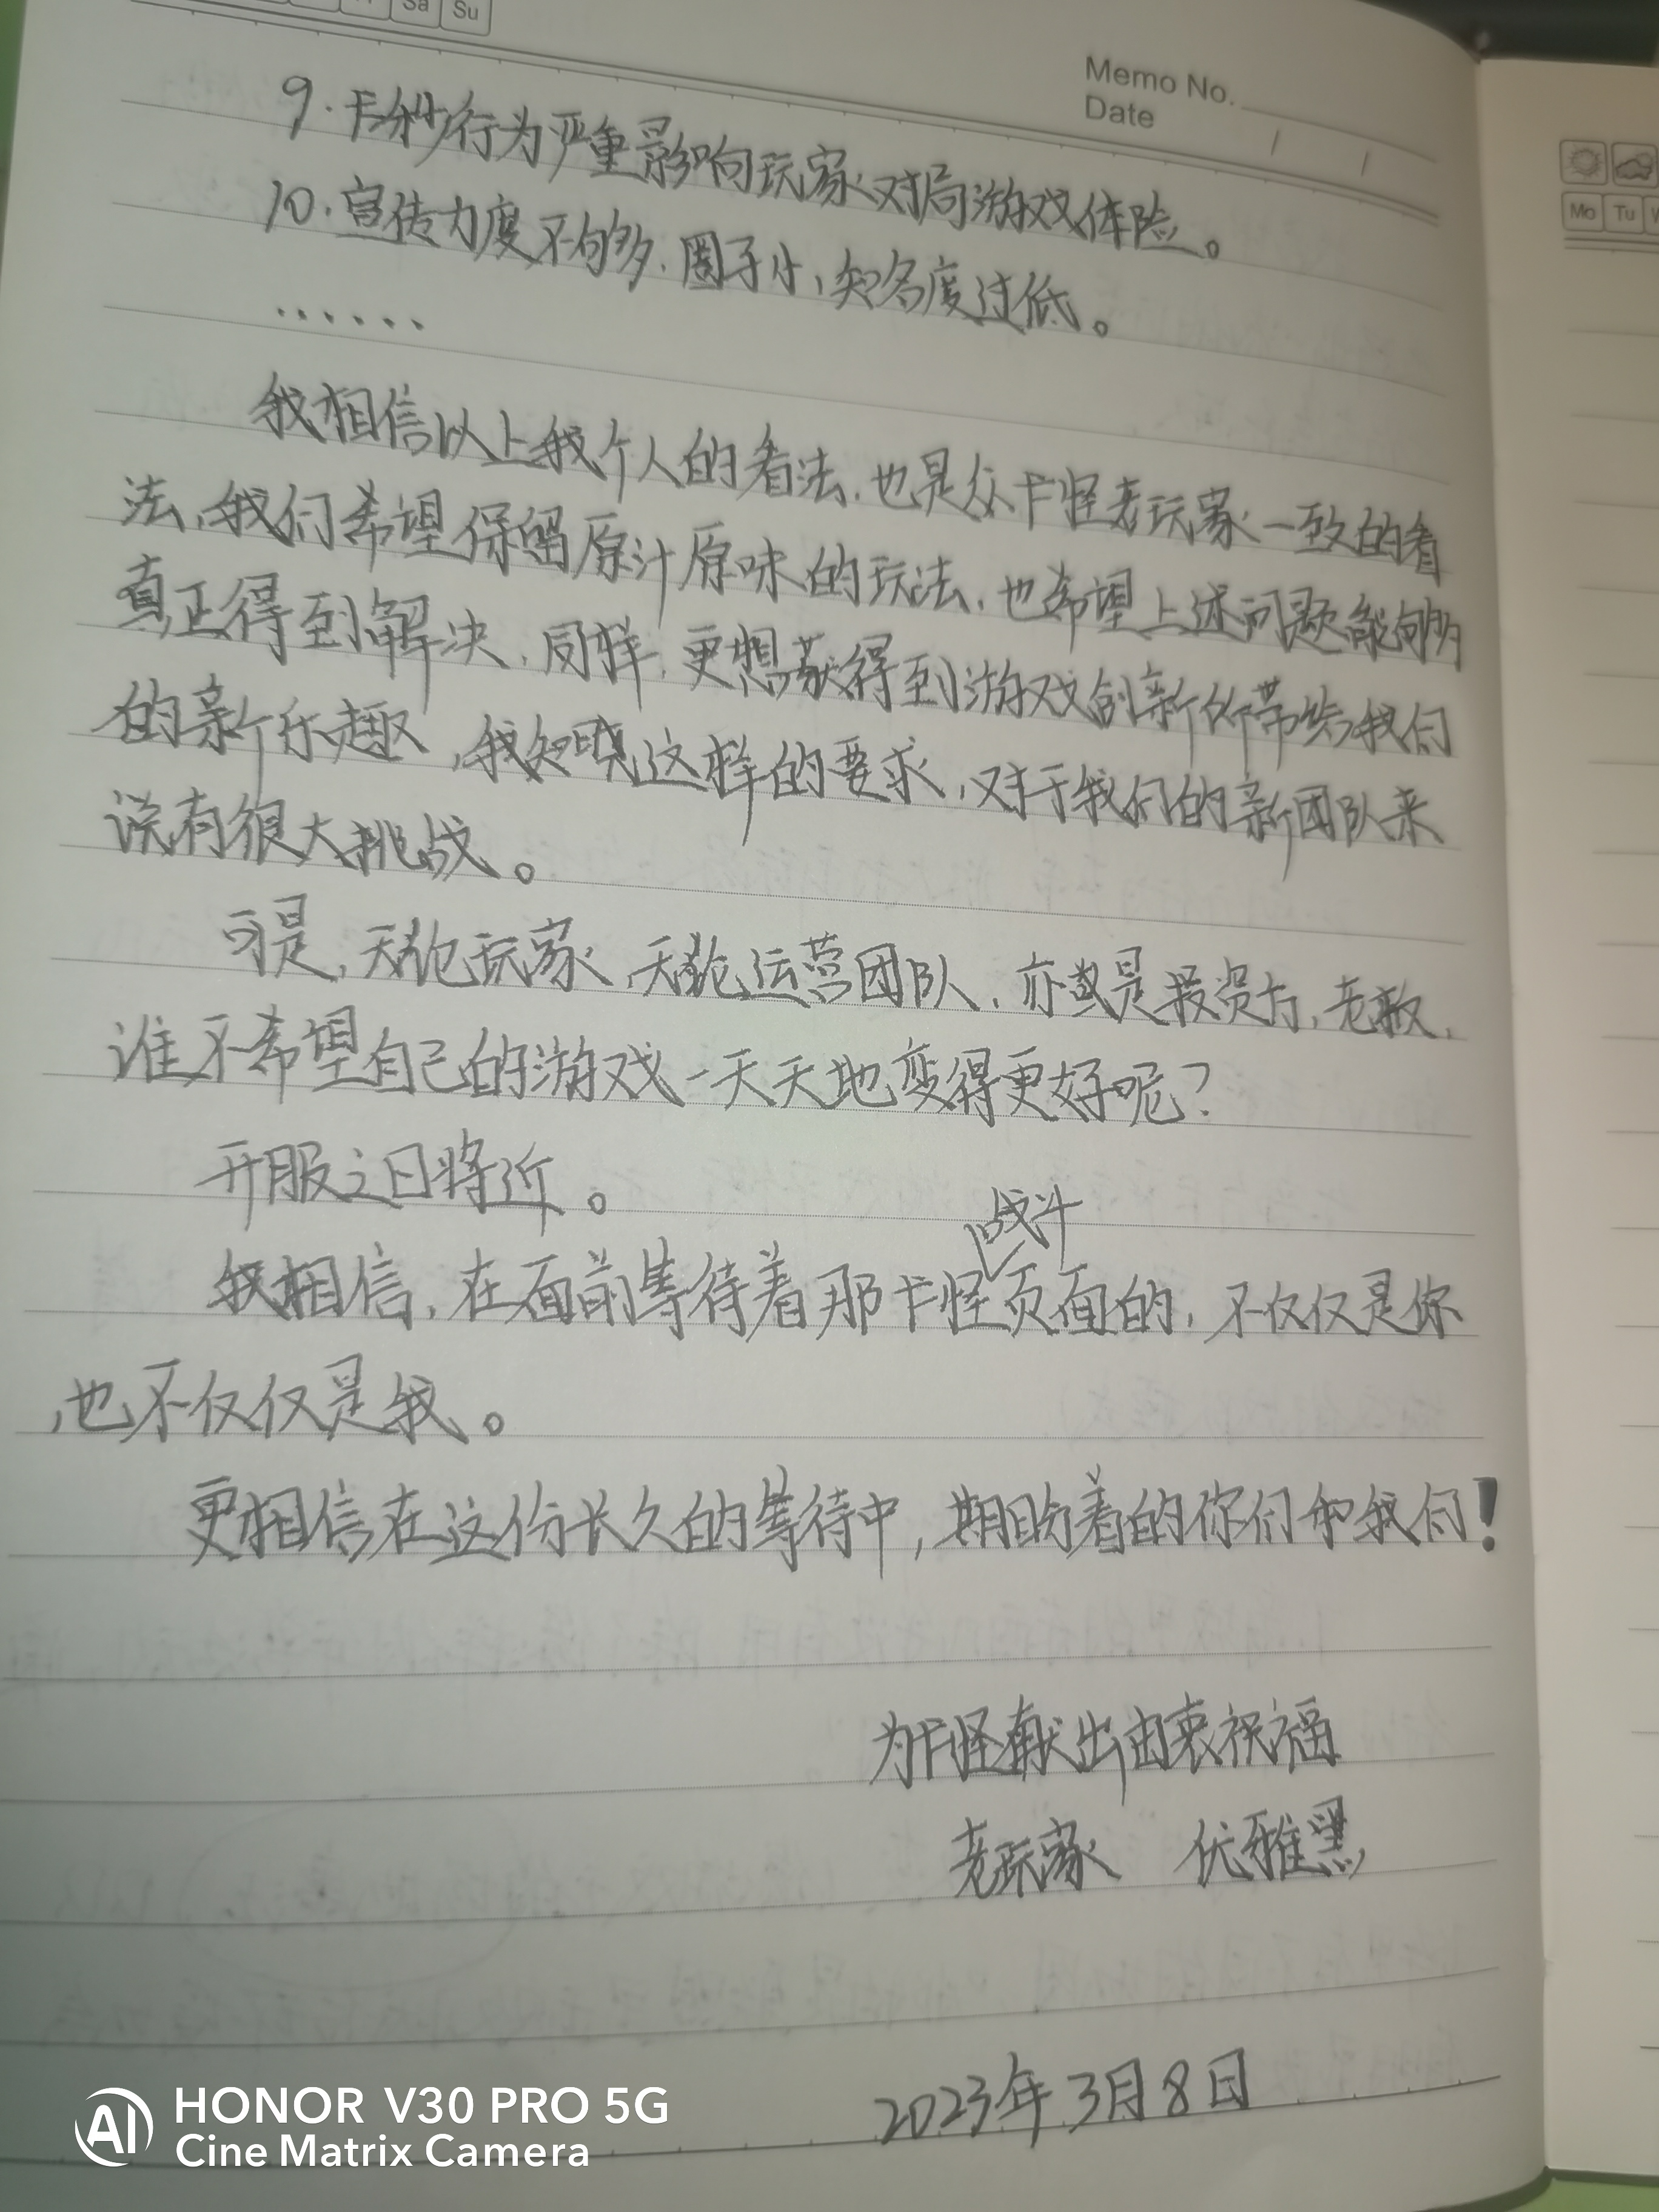 Sa Su
Memo No.
Date / /
Mo Tu
9.卡秒行为严重影响玩家对局游戏体险。
10.宣传力度不够多,圈子小,知名度过低。
......
我相信以上我个人的看法,也是众卡怪老玩家一致的看
法,我们希望保留原汁原味的玩法,也希望上述问题能够
真正得到解决,同样,更想获得到游戏创新所带给我们
的新乐趣,我知晓这样的要求,对于我们的新团队来
说有很大挑战。
可是,无论玩家,无论运营团队,亦或是投资方,老板,
谁不希望自己的游戏一天天地变得更好呢?
开服之日将近。
战斗
我相信,在面前等待着那卡怪页面的,不仅仅是你
,也不仅仅是我。
更相信在这份长久的等待中,期盼着的你们和我们!
为卡怪献出由衷祝福
老玩家 优雅黑
2023年3月8日
AI HONOR V30 PRO 5G
Cine Matrix Camera